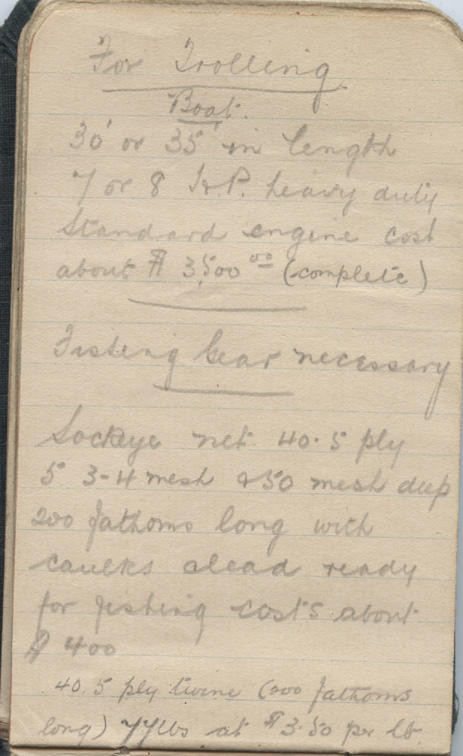 For Trolling
Boat.
30' or 35' in length
7 or 8 H.P. heavy duty
Standard engine cost
about $ 3,500 00 (complete)
Fishing Gear necessary
Sockeye net 40.5 ply
5 3-4 mesh & 50 mesh deep
200 fathoms long with
caulks alead ready
for fishing costs about
$ 400
40.5 ply twine (200 fathoms
long) 77 lbs at $3.50 per lb